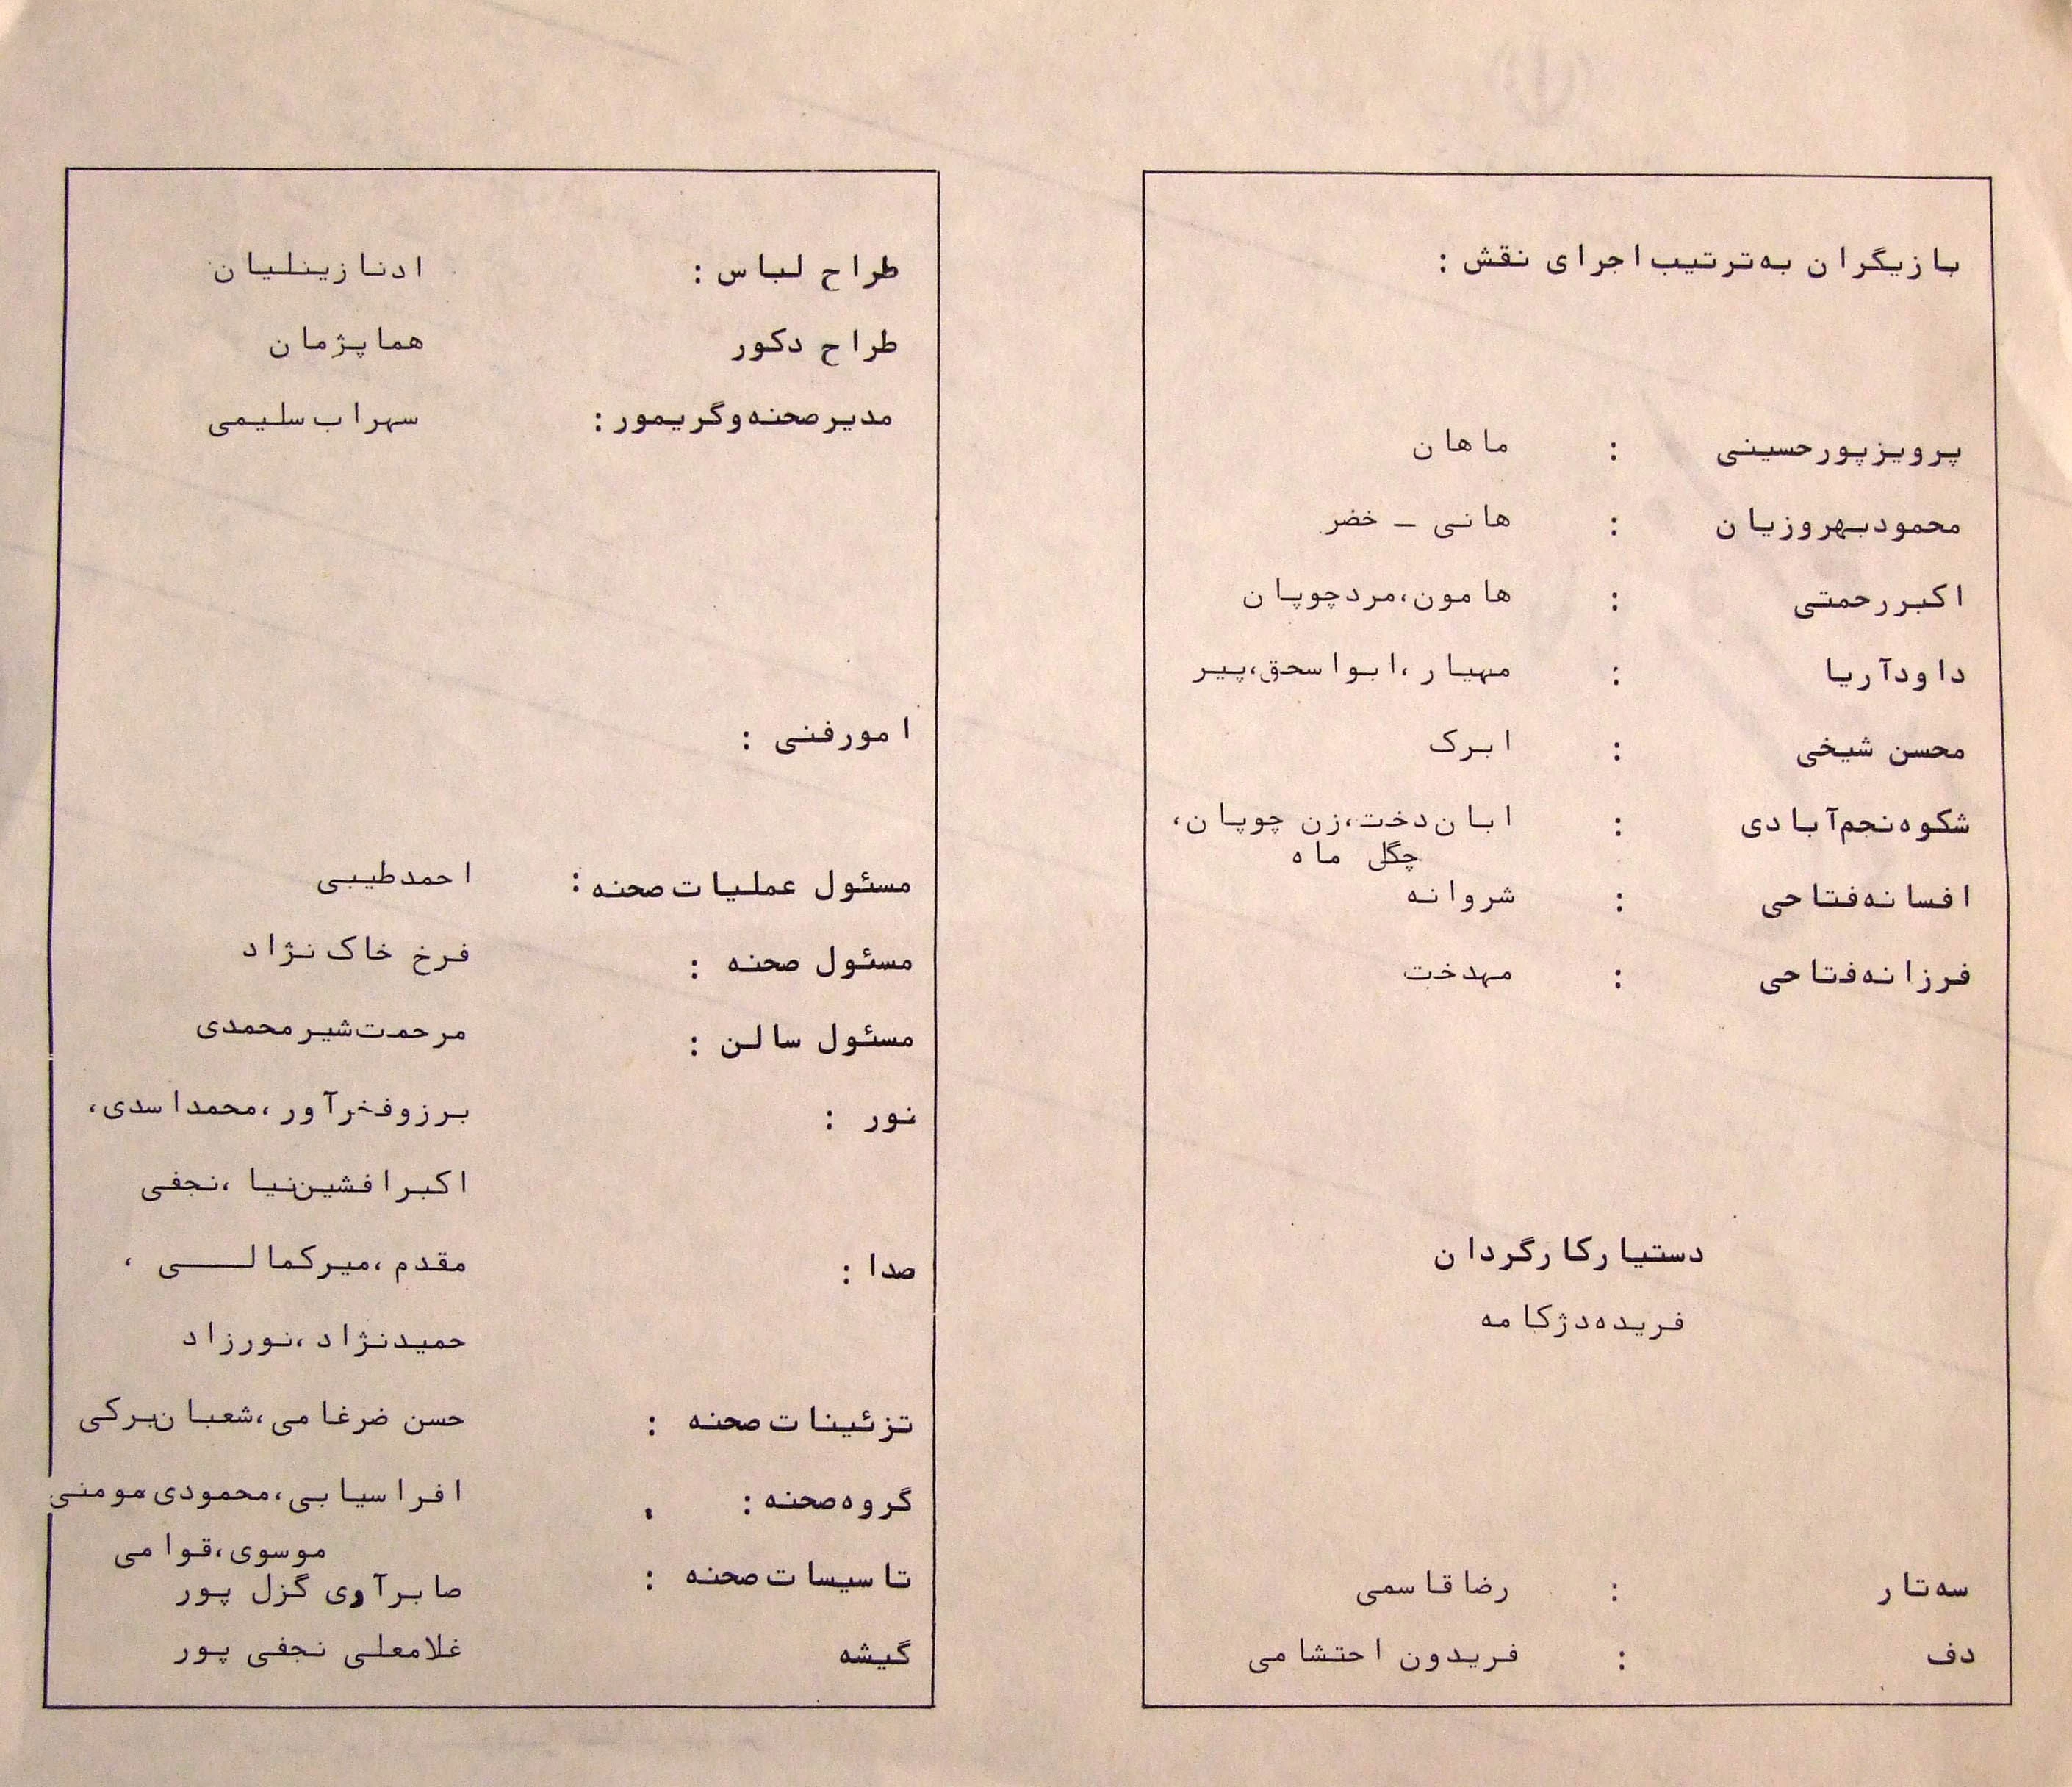 بازیگران به‌ترتیب اجرای نقش :
پرویز پورحسینی : ماهان
محمود بهروزیان : هانی – خضر
اکبر رحمتی : هامون، مرد چوپان
داود آریا : مهیار، ابواسحق، پیر
محسن شیخی : ابرک
شکوه نجم‌آبادی : ابان‌دخت، زن چوپان،
چگل ماه
افسانه فتاحی : شروانه
فرزانه فتاحی : مهدخت
دستیار کارگردان
فریده دژکامه
سه‌تار : رضا قاسمی
دف : فریدون احتشامی
طراح لباس : ادنا زینلیان
طراح دکور هما پژمان
مدیر صحنه و گریمور : سهراب سلیمی
امور فنی :
مسئول عملیات صحنه : احمد طیبی
مسئول صحنه : فرخ خاک نژاد
مسئول سالن : مرحمت شیرمحمدی
نور : برزو فخرآور، محمد اسدی،
اکبر افشین‌نیا، نجفی
صدا : مقدم، میرکمالی،
حمید نژاد، نورزاد
تزئینات صحنه : حسن ضرغامی، شعبان یرکی
گروه صحنه : افراسیابی، محمودی، مومنی
موسوی، قوامی
تاسیسات صحنه : صابر آوی گزل پور
گیشه غلامعلی نجفی پور